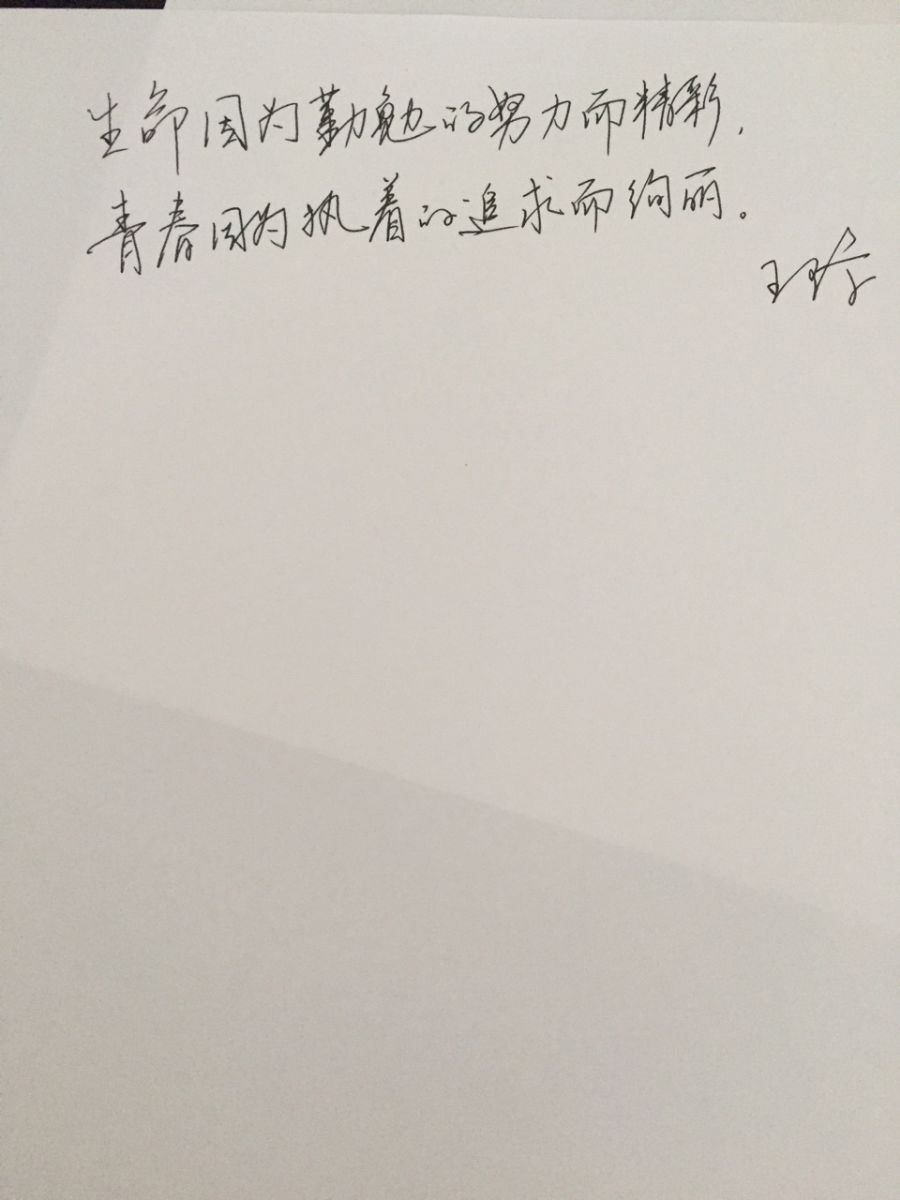 生命因为勤勉的努力而精彩，
青春因为执着的追求而绚丽。
王玲